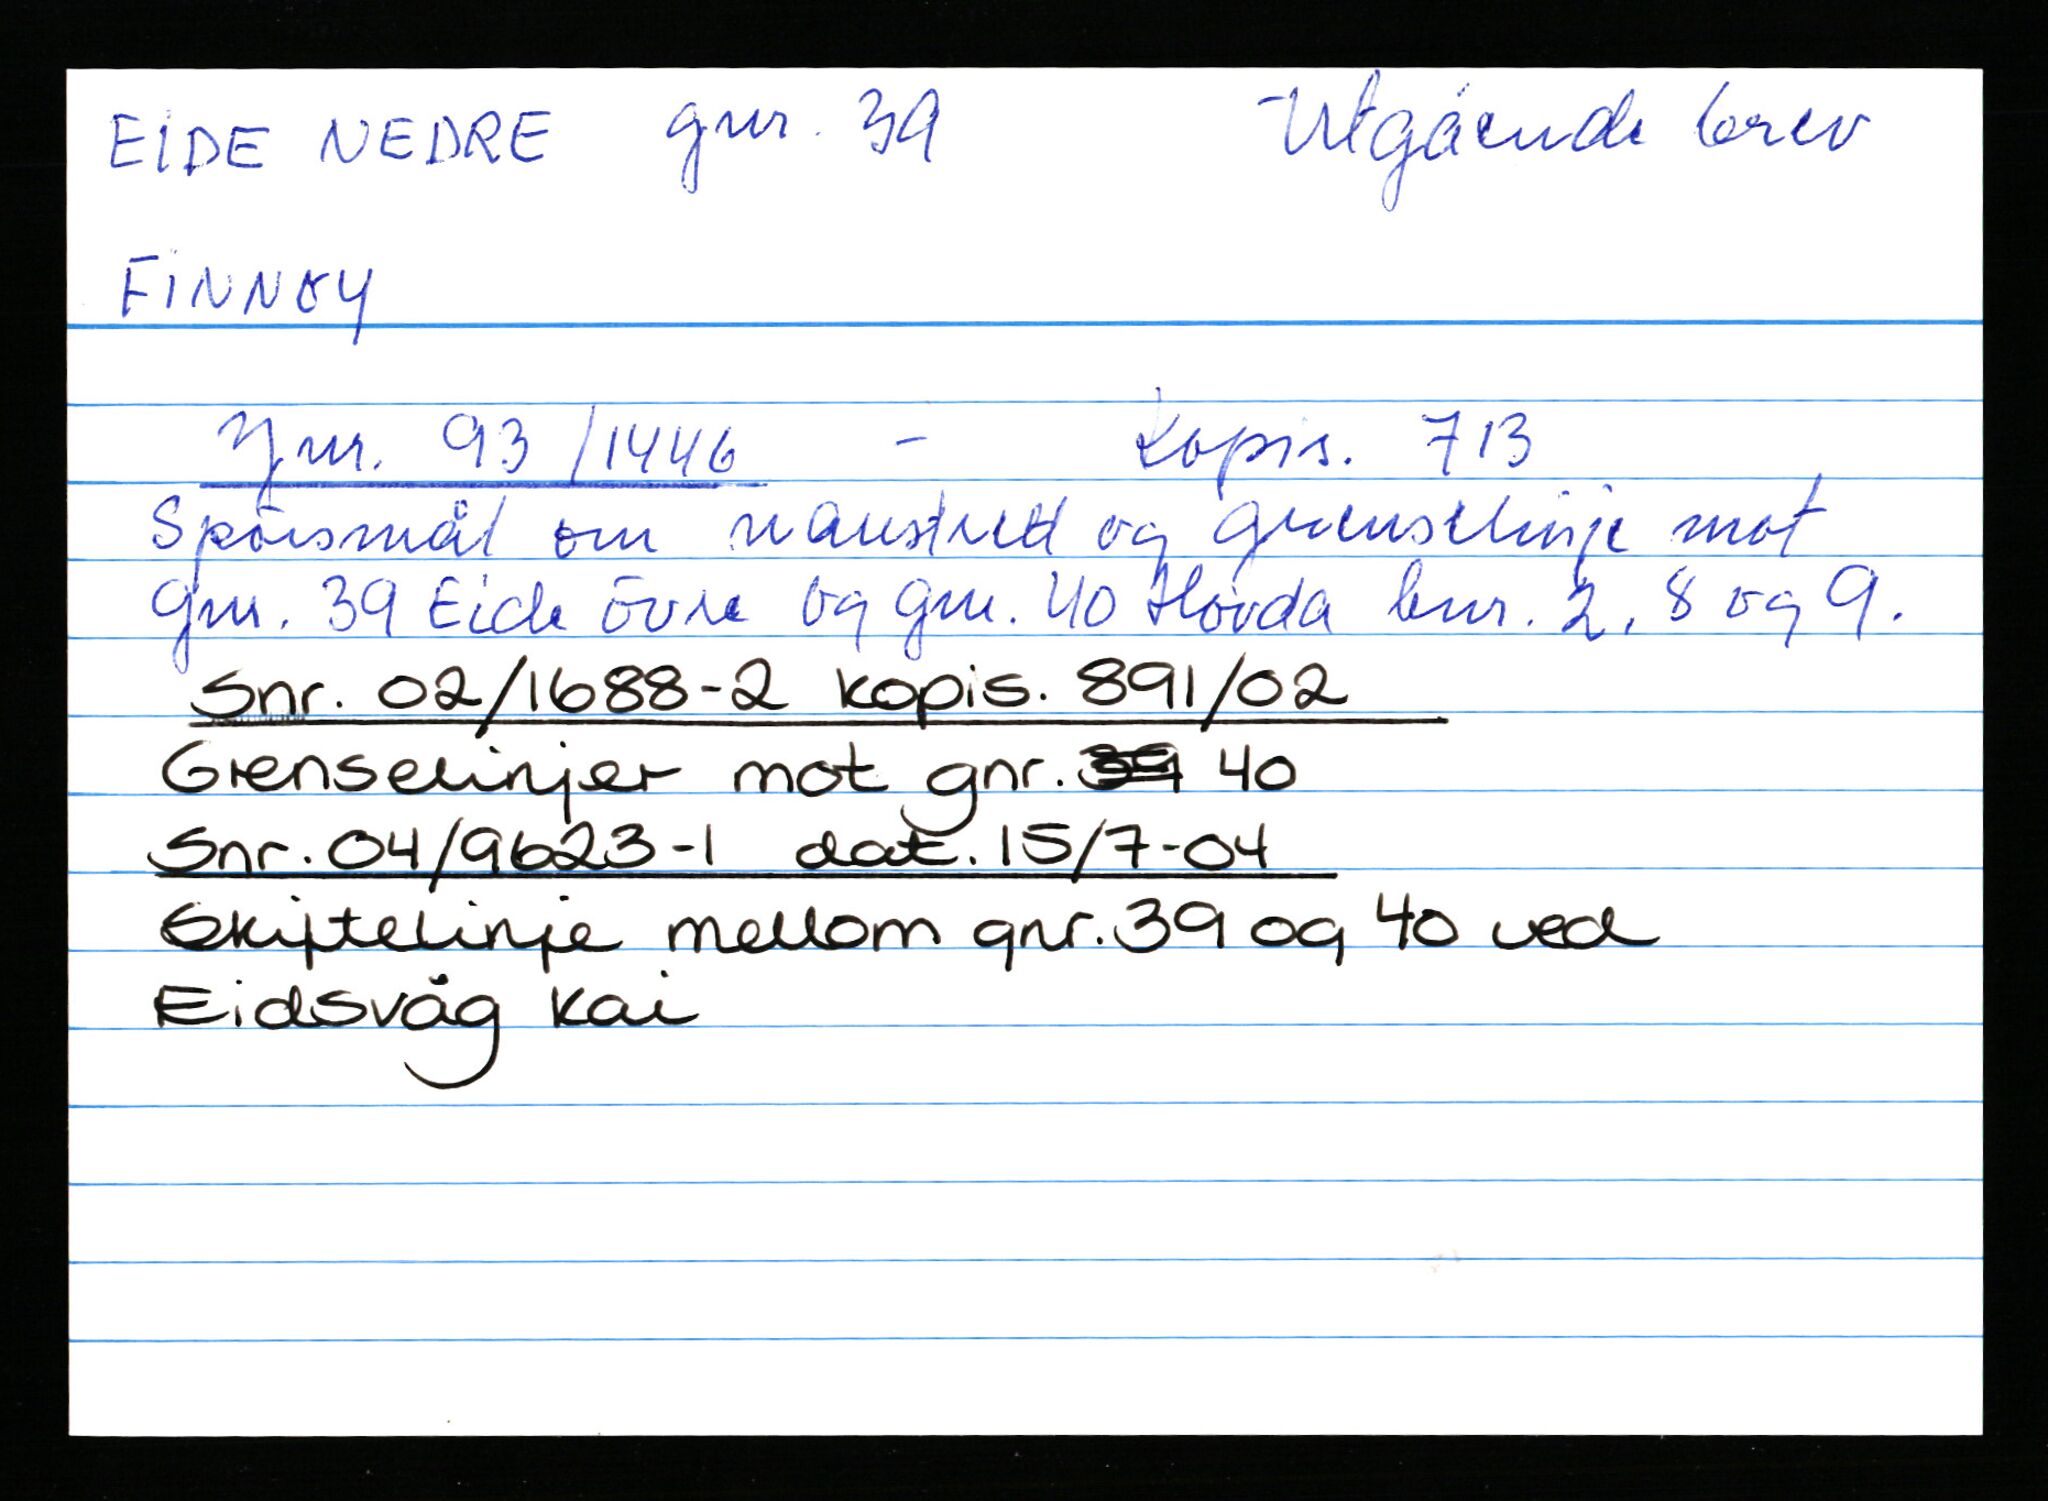 EIDE NEDRE gnr. 39 Utgående brev
FINNØY
Jnr. 93/1446 - Kopis. 713
Spörsmål om naustrett og grenselinje mot
gnr. 39 Eide övre og gnr. 40 Hovda bnr. 2, 8 og 9.
Snr. 02/1688-2 kopis. 891/02
Grenselinjer mot gnr. 39 40
Snr. 04/9623-1 dat. 15/7-04
Skiftelinje mellom gnr. 39 og 40 ved
Eidsvåg kai